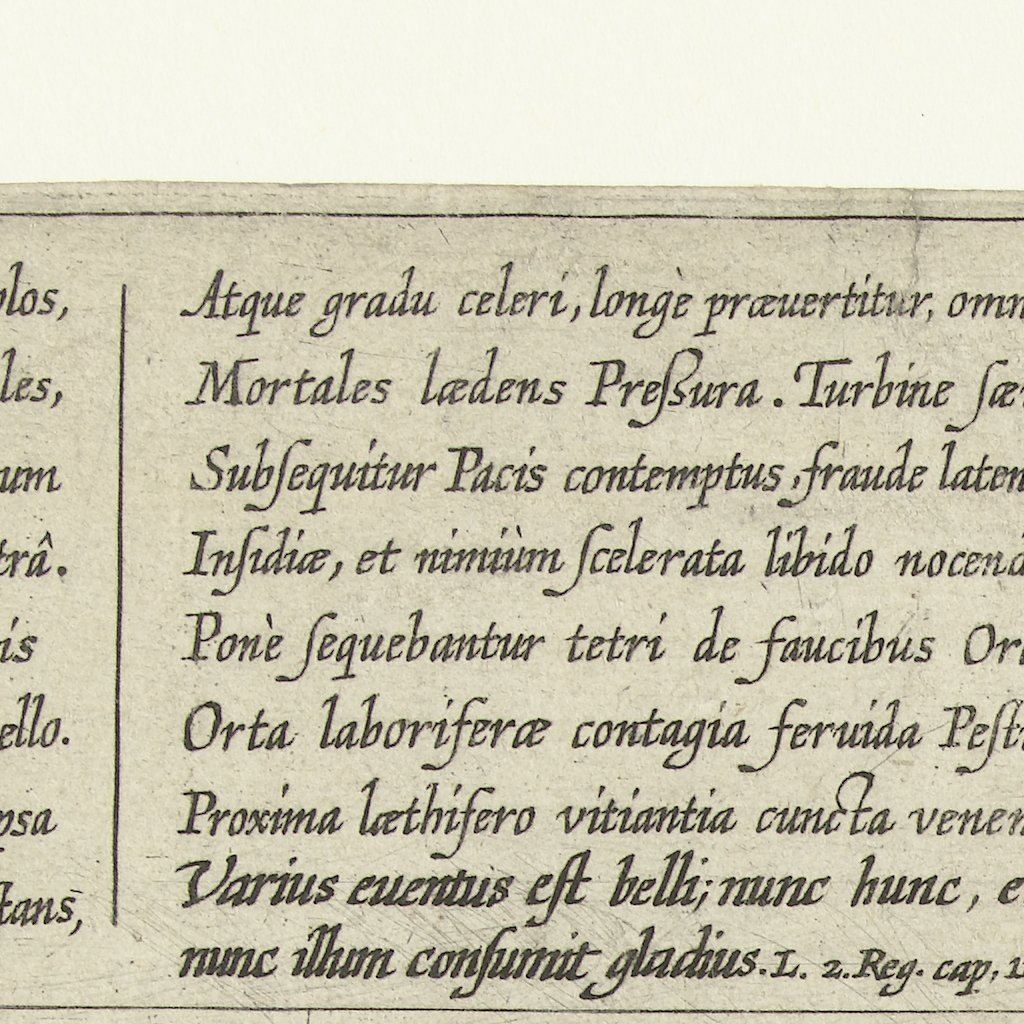 Atque gradu celeri, longè præuertitur,
Mortales lædens Preſſura. Turbine
Subſequitur Pacis contemptus, fraude
Inſidiæ, et nimiùm ſcelerata libido
Ponè ſequebantur tetri de faucibus
Orta laboriferæ contagia feruida
Proxima læthifero vitiantia cuncta
Varius euentus eſt belli; nunc hunc,
nunc illum conſumit gladius. L. 2. Reg. cap.